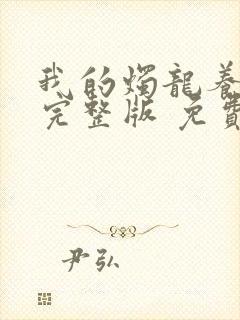 我的燭龍養
完整版 免費
尹弘